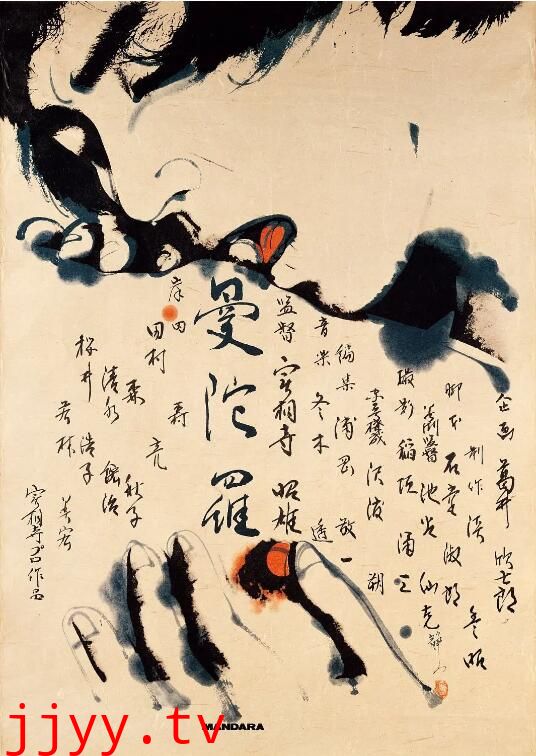 企画 葛井欣士郎
制作 淡豊昭
脚本 石堂淑朗
美術 池谷仙克
静山
撮影 稲垣涌三
沢渡 朔
編集 浦岡敬一
音楽 冬木透
監督 実相寺昭雄
曼陀羅
岸田 森
田村 亮
森 秋子
清水 紘治
桜井 浩子
若林 美宏
実相寺プロ作品
MANDARA
jjyy.tv